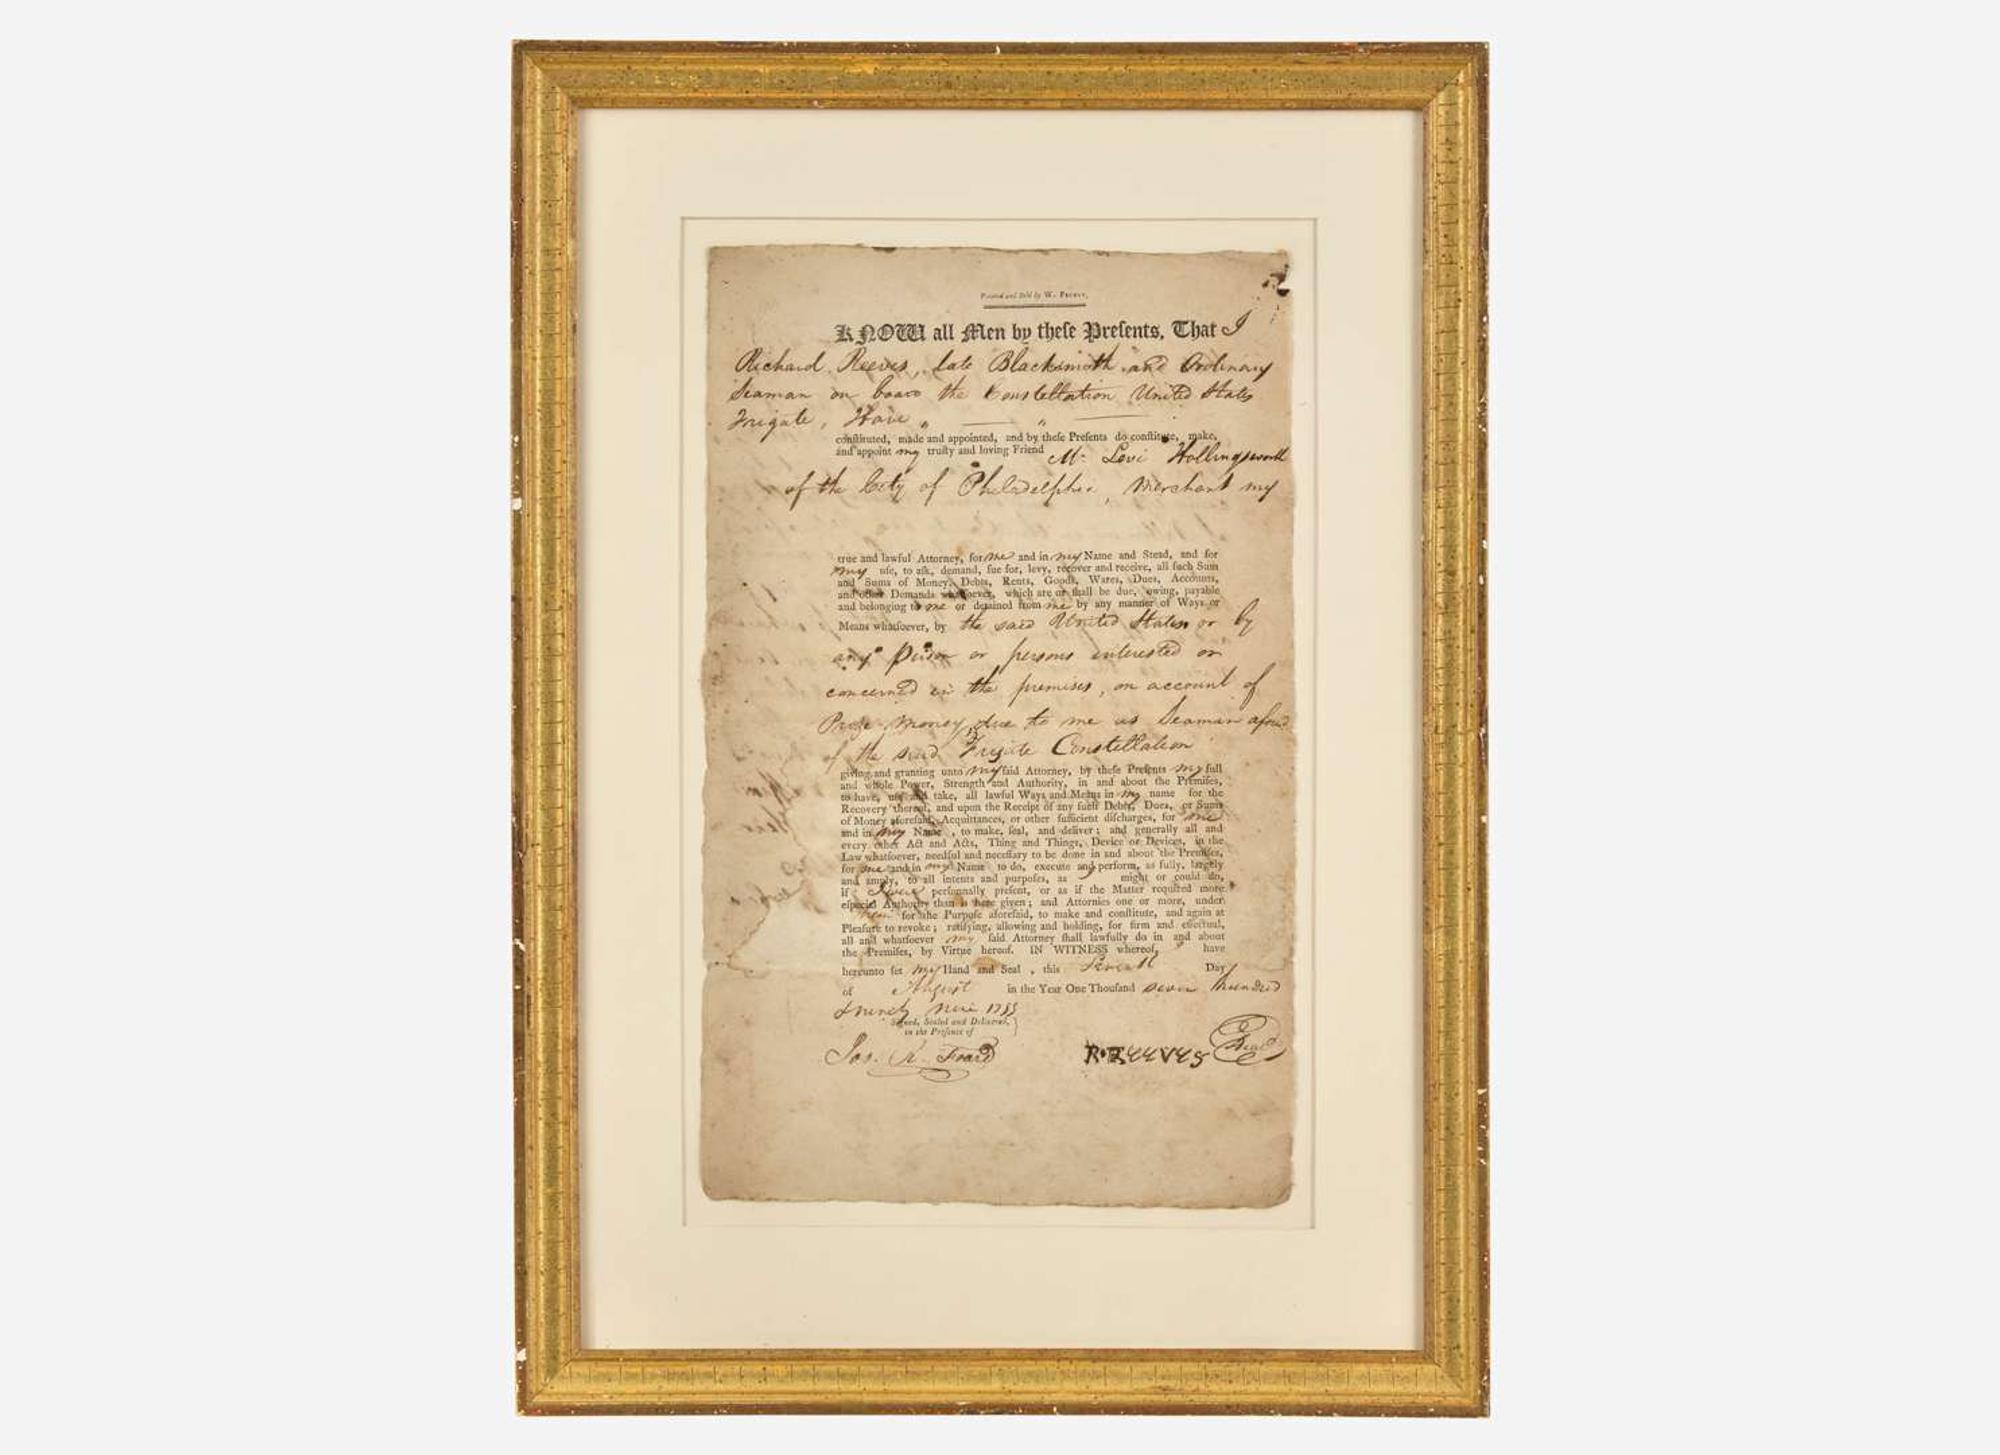 Printed and Sold by W. PECHIN,
KNOW all Men by theſe Preſents, That I
Richard Reeves, late Blacksmith and Ordinary
Seaman on board the Constellation United States
Frigate, Have
conſtituted, made and appointed, and by theſe Preſents do conſtitute, make,
and appoint my truſty and loving Friend Mr. Levi Hollingsworth
of the City of Philadelphia, Merchant my
true and lawful Attorney, for me and in my Name and Stead, and for
my uſe, to aſk, demand, ſue for, levy, recover and receive, all ſuch Sum
and Sums of Money, Debts, Rents, Goods, Wares, Dues, Accounts,
and other Demands whatſoever, which are or ſhall be due, owing, payable
and belonging to me or detained from me by any manner of Ways or
Means whatſoever, by the said United States or by
any person or persons interested or
concerned in the premises, on account of
Prize Money due to me as Seaman aforesd
of the said Frigate Constellation
giving and granting unto my ſaid Attorney, by theſe Preſents my full
and whole Power, Strength and Authority, in and about the Premiſes,
to have, uſe and take, all lawful Ways and Means in my name for the
Recovery thereof, and upon the Receipt of any ſuch Debts, Dues, or Sums
of Money aforeſaid, Acquittances, or other ſufficient diſcharges, for me
and in my Name, to make, ſeal, and deliver; and generally all and
every other Act and Acts, Thing and Things, Device or Devices, in the
Law whatſoever, needful and neceſſary to be done in and about the Premiſes,
for me and in my Name to do, execute and perform, as fully, largely
and amply, to all intents and purpoſes, as I might or could do,
if I were perſonnally preſent, or as if the Matter required more
eſpecial Authority than is here given; and Attornies one or more, under
him for the Purpoſe aforeſaid, to make and conſtitute, and again at
Pleaſure to revoke; ratifying, allowing and holding, for firm and effectual,
all and whatſoever my ſaid Attorney ſhall lawfully do in and about
the Premiſes, by Virtue hereof. IN WITNESS whereof, I have
hereunto ſet my Hand and Seal, this Seventh Day
of August in the Year One Thouſand seven hundred
& ninety nine 1799
Signed, Sealed and Delivered,
in the Preſence of
Jas. K. Foard R. Reeves Seal